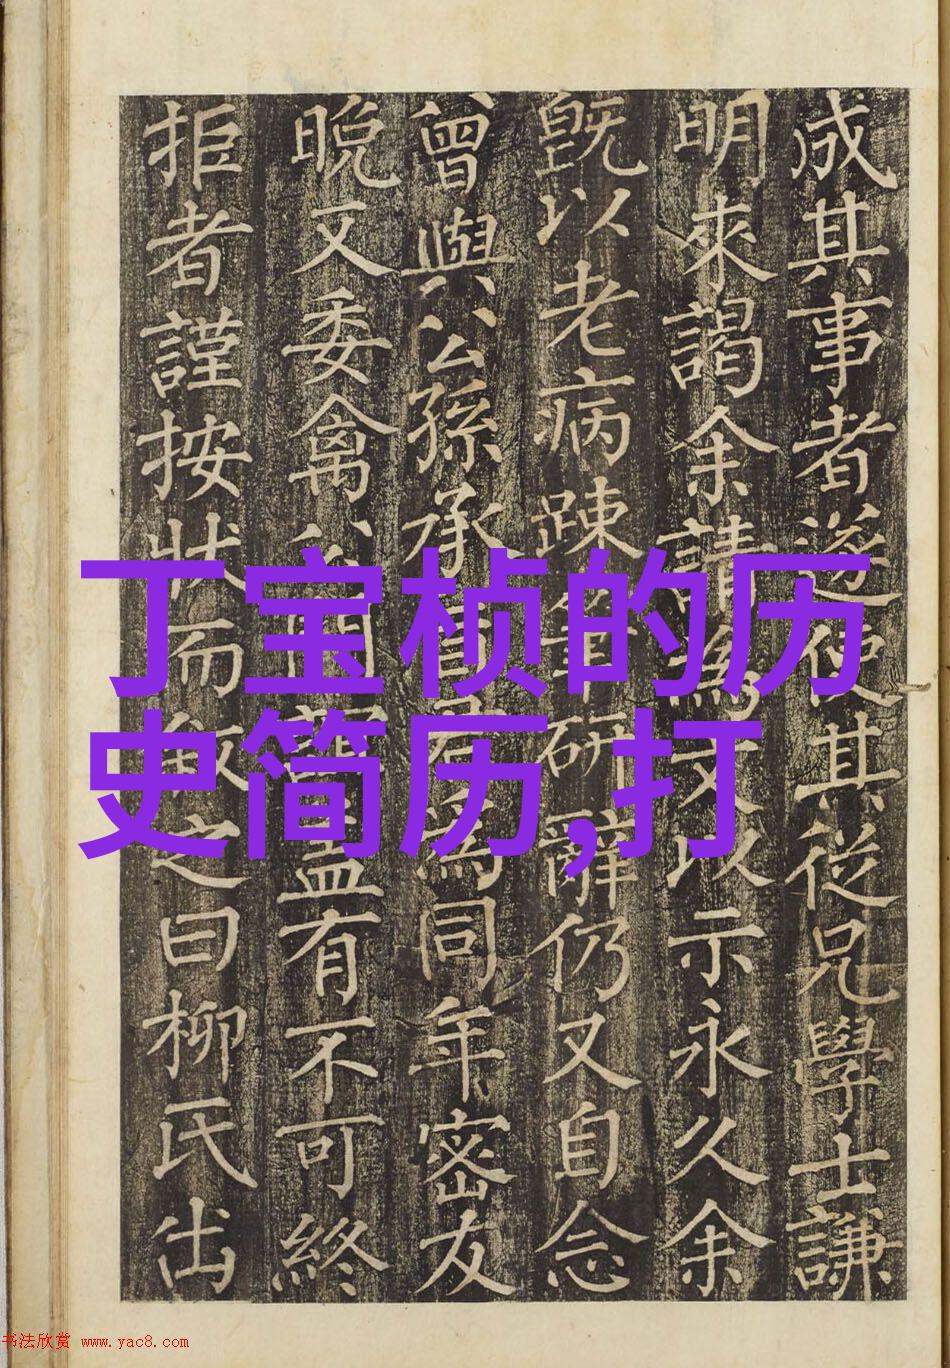 丁宝桢的历
史简历,打
成其事者遂使其從兄學士謙
明來謁余請為文以示永久余
既以老病踈研辭仍又自念
曾與公孫承為同年密友
晚又委禽盖有不可終
拒者謹按狀而叙之曰柳氏出
书法欣赏 www.yac8.com